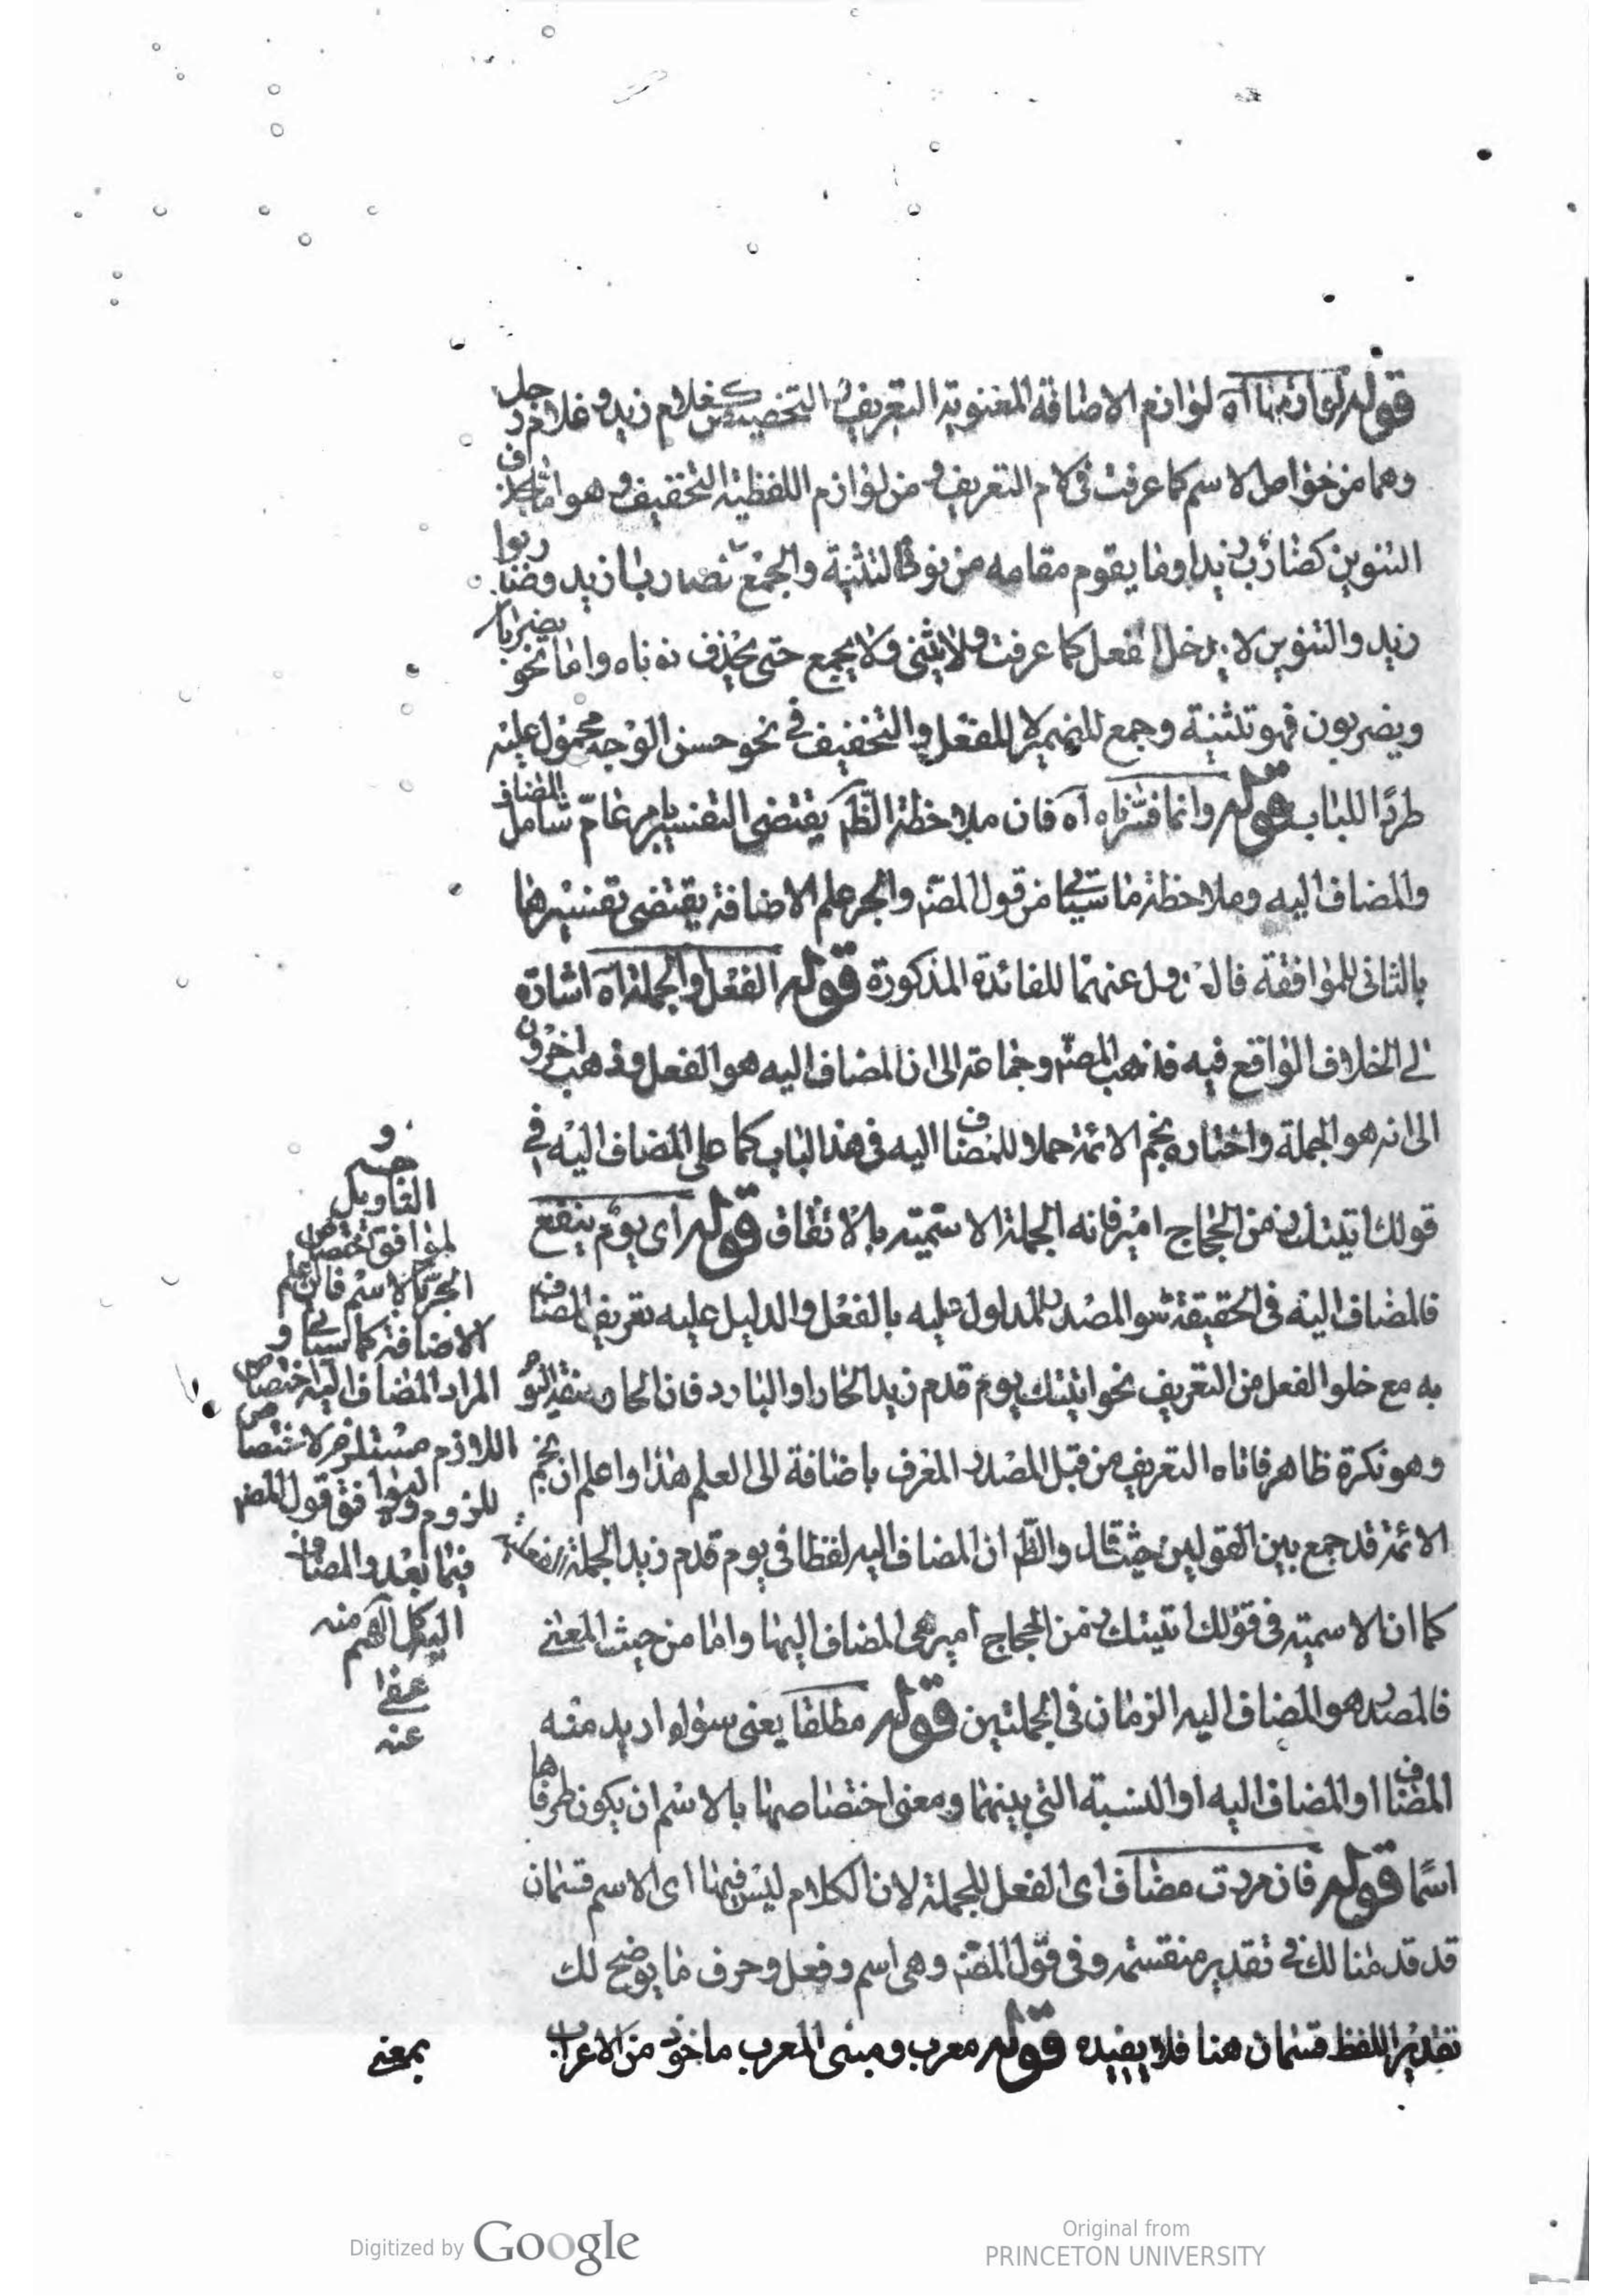 قوله لوازمها آه لوازم الاضافة المعنوية التعريف والتخصيص كغلام زيد وغلام رجل
وهما من خواص الاسم كما عرفت في لام التعريف ومن لوازم اللفظية التخفيف وهو اما بحذف
التنوين كضارب زيد اوما يقوم مقامه من نونى التثنية والجمع نحو ضاربا زيد وضاربوا
زيد والتنوين لا يدخل الفعل كما عرفت ولا يثنى ولا يجمع حتى يحذف نوناه واما نحو يضربان
ويضربون فهو تثنية وجمع للضمير لا للفعل والتخفيف في نحو حسن الوجه محمول عليه
طردًا للباب قوله وانما فسرناه آه فان ملاحظة الظ يقتضى التفسير بامر عامّ شامل للمضاف
والمضاف اليه وملاحظة ما سيأتي من قول المصنه والجر علم الاضافة يقتضى تفسيرها
بالثانى للموافقة عنهما للفائدة المذكورة قوله الفعل والجملة آه اشارة
الى الخلاف الواقع فيه فذهب المصنه وجماعة الى ان المضاف اليه هو الفعل وذهب اخرون
الى انه هو الجملة واختاره نجم الائمة حملا للمضاف اليه فى هذا الباب كما على المضاف اليه في
قولك اتيتك زمن الحجاج امير فانه الجملة الاسمية بالاتفاق قوله اى يوم ينفع
فالمضاف اليه فى الحقيقة هو المصدر المدلول عليه بالفعل والدليل عليه تعريف المضاف
به مع خلو الفعل من التعريف نحو اتيتك يوم قدم زيد الحار او البارد فان الحار
وهو نكرة ظاهر فاتاه التعريف من قبل المصدر المعرف باضافة الى العلم هذا واعلم ان نجم
الائمة قد جمع بين القولين حيث قال والظ ان المضاف اليه لفظا فى يوم قدم زيد الجملة الفعلية
كما ان الاسمية فى قولك اتيتك زمن الحجاج أمير هى المضاف اليها واما من حيث المعنى
فالمصدر هو المضاف اليه الزمان فى الجملتين قوله مطلقا يعنى سواء اريد منه
المضاف او المضاف اليه او النسبة التي بينهما ومعنى اختصاصها بالاسم ان يكون طرفاها
اسمًا قوله فان مضاف اى الفعل للجملة لان الكلام ليس فيها اى الاسم قسمان
قد قدمنا لك في تقدير منقسمة وفى قول المصنه وهى اسم وفعل وحرف ما يوضح لك
تقدير اللفظ قسمان هنا فلا يفيده قوله معرب ومبنى المعرب ماخوذ من الاعراب
بمعنى
و
التاويل
الجر بالاسم فان علم
الاضافة كما سيأتي و
المراد المضاف اليه اختصاص
اللازم مستلزم لاختصاص
للزوم وليوافق قول المصنه
فيما بعد والمضاف
اليه كل اسم منه
عفى
عنه
Digitized by Google
Original from
PRINCETON UNIVERSITY